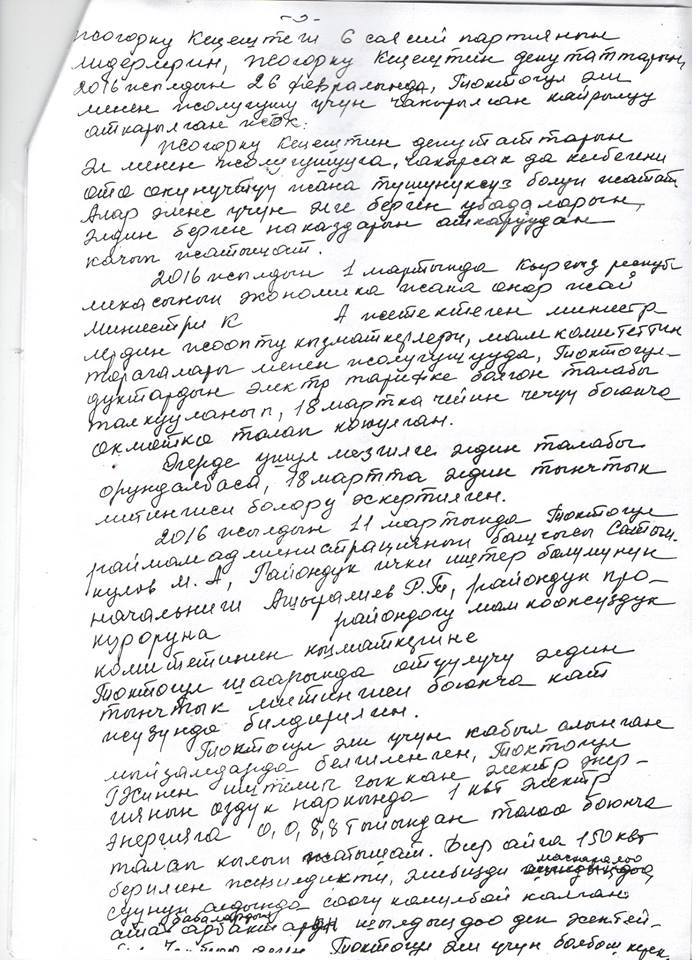 - 3 -
Жогорку Кеңештеги 6 саясий партиянын
лидерлерин, Жогорку Кеңештин депутаттарын,
2016 жылдын 26 февралында, Токтогул эли
менен жолугушу үчүн чакырылган кайрылуу
аткарылган жок.
Жогорку Кеңештин депутаттарын
эл менен жолугушууга, чакырсак да келбегени
өтө өкүнүчтүү жана түшүнүксүз болуп жатат.
Алар эмне үчүн элге берген убадаларын,
элдин берген наказдарын аткаруудан
качып жатышат.
2016 жылдын 1 мартында Кыргыз респуб
ликасынын экономика жана өнөр жай
министри К А жетектеген министр
лердин жооптуу кызматкерлери, мамкомитеттин
төрагалары менен жолугушууда, Токтогул-
дуктардын электр тарифке болгон талабы
талкууланып, 18 мартка чейин чечүү боюнча
өкмөткө талап коюлган.
Эгерде ушул мезгилге элдин талабы
орундалбаса, 18 мартта элдин тынчтык
митингиси болору эскертилген.
2016 жылдын 11 мартында Токтогул
раймамадминистрациянын башчысы Сатыл-
кулов М. А, Райондук ички иштер бөлүмүнүн
начальниги Ашыралиев Р.Т, райондук про-
куроруна райондогу мамкоопсуздук
комитетинин кызматкерине
Токтогул шаарында өтүүчү элдин
тынчтык митингиси боюнча кат
жүзүндө билдирилген.
Токтогул эли үчүн кабыл алынган
мыйзамдарда белгиленген, Токтогул
ГЭСинен иштелип чыккан электр энер-
гиянын өздүк наркында 1 квт электр
энергияга 0,0,8,8 тыйындан төлөө боюнча
талап кылып жатышат. Бир айга 150 квт
берилген жеңилдикти, элибизди маскаралоо
суунун алдында соогу көмүлбөй калган
ата бабалардын арбактардын шылдыңдоо деп эсептей-
Токтогул эли үчүн болбош керек